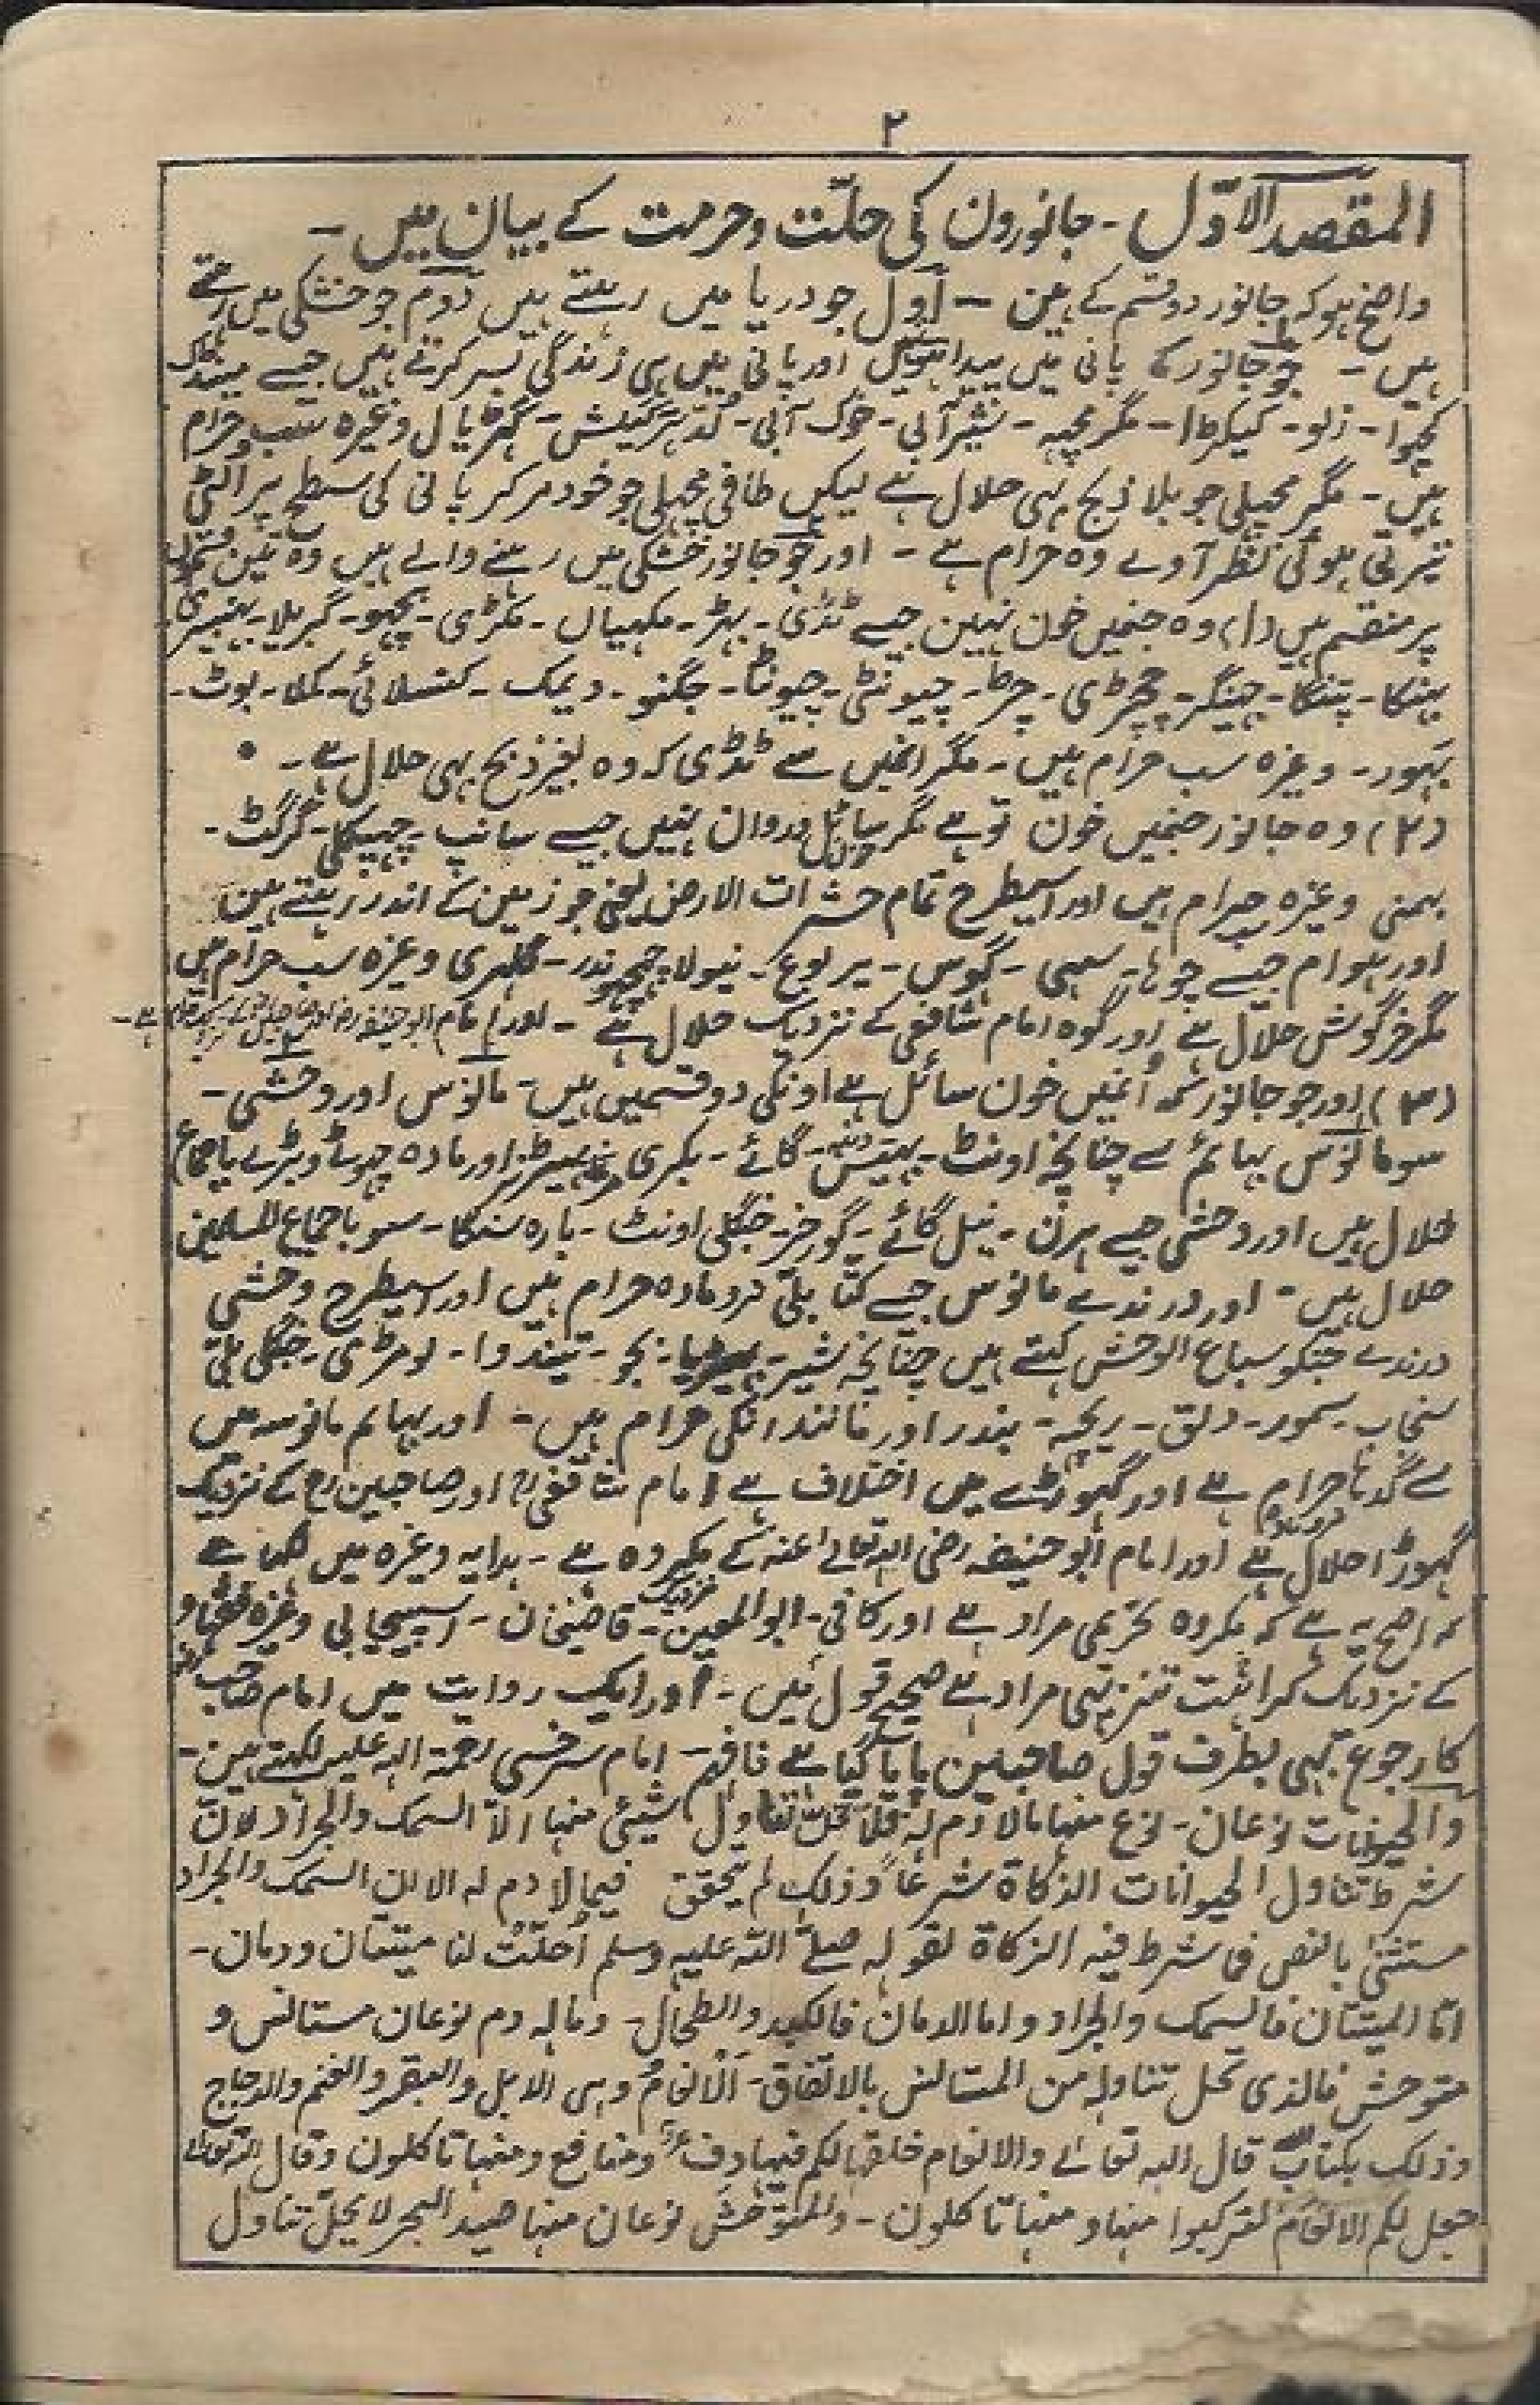 ۲
المقصد الاوّل ۔ جانورون کی حلّت وحرمت کے بیان میں ۔
واضح ہو کہ جانور دو قسم کے ہین ۔ اول جو دریا میں رہتے ہیں دوم جو خشکی میں رہتے
ہیں ۔ جو جانور کہ پانی میں پیدا ہوئیں اور پانی میں ہی زندگی بسر کرتے ہیں جیسے مینڈک
کچھوا ۔ زلو ۔ کیکڑا ۔ مگرمچھ ۔ شیر آبی ۔ خوک آبی ۔ گھڑیال وغیرہ سب حرام
ہیں ۔ مگر مچھلی جو بلا ذبح ہی حلال ہے لیکن طافی مچھلی جو خود مر کر پانی کی سطح پر الٹی
تیرتی ہوئی نظر آوے وہ حرام ہے ۔ اور جو جانور خشکی میں رہنے والے ہیں وہ تین قسموں
پر منقسم ہیں (۱) وہ جنمیں خون نہین جیسے ٹڈی ۔ بھڑ ۔ مکہیاں ۔ مکڑی ۔ بچھو ۔ گبریلا ۔ بھنبیری
بھنگا ۔ پتنگا ۔ جھینگر ۔ چچڑی ۔ چیونٹی ۔ چیونٹا ۔ جگنو ۔ دیمک ۔ کنسلائی ۔ ملا ۔ بوٹ ۔
وغیرہ سب حرام ہیں ۔ مگر انمیں سے ٹڈی کہ وہ بغیر ذبح بہی حلال ہے ۔
(۲) وہ جانور جنمیں خون تو ہے مگر سائل و روان نہیں جیسے سانپ ۔ چھپکلی ۔ گرگٹ ۔
بہمنی وغیرہ حرام ہیں اور اسیطرح تمام حشرات الارض یعنی جو زمین کے اندر رہتے ہین
اور ہوام جیسے چوہا ۔ سہی ۔ گھوس ۔ یربوع ۔ نیولا ۔ چھچھوندر ۔ گلہری وغیرہ سب حرام ہیں
مگر خرگوش حلال ہے اور گوہ امام شافعی کے نزدیک حلال ہے ۔ اور امام ابو حنیفہ
(۳) اور جو جانور کہ انمیں خون سائل ہے اونکی دو قسمیں ہیں ۔ مانوس اور وحشی ۔
سو مانوس بہائم سے چنانچہ اونٹ ۔ بہینس ۔ گائے ۔ بکری نر اور مادہ چھوٹے و بڑے باجماع
حلال ہیں اور وحشی جیسے ہرن ۔ نیل گائے ۔ گورخر ۔ جنگلی اونٹ ۔ بارہ سنگا ۔ سو باجماع المسلمین
حلال ہیں ۔ اور درندے مانوس جیسے کتا بلّی نر و مادہ حرام ہیں اور اسیطرح وحشی
درندے جنکو سباع الوحش کہتے ہیں چنانچہ شیر ۔ بھیڑیا ۔ بجو ۔ تیندوا ۔ لومڑی ۔ جنگلی بلی
سنجاب ۔ سمور ۔ دلق ۔ ریچھ ۔ بندر اور مانند انکی حرام ہیں ۔ اور بہائم مانوسہ میں
سے گدہا حرام ہے اور گہوڑے میں اختلاف ہے امام شافعی رح اور صاحبین رح کے نزدیک
گہوڑا حلال ہے اور امام ابو حنیفہ رضی اللہ تعالےٰ عنہ کے نزدیک مکروہ ہے ۔ ہدایہ وغیرہ میں لکہا ہے
کہ اصح یہ ہے کہ مکروہ تحریمی مراد ہے اور کافی ۔ ابو المعین ۔ قاضیخان ۔ اسبیجابی وغیرہ
کے نزدیک کراہت تنزیہی مراد ہے صحیح قول میں ۔ اور ایک روایت میں امام صاحب
کا رجوع بہی بطرف قول صاحبین پایا گیا ہے فافہم ۔ امام سرخسی رحمۃ اللہ علیہ لکہتے ہین ۔
والحیوانات نوعان ۔ نوع منہا مالا دم لہ فلا تحل تناول شیئی منہا الا السمک والجراد لان
شرط تناول الحیوانات الذکاۃ شرعاً وذلک لم یتحقق فیما لا دم لہ الا ان السمک والجراد
مستثنیٰ بالنص فی شرط فیہ الزکاۃ لقولہ صلے اللہ علیہ وسلم اُحلّت لنا میتتان ودمان ۔
امّا المیتتان فالسمک والجراد واما الدمان فالکبد والطحال ۔ وما لہ دم نوعان مستانس و
متوحش فالذی تحل تناولہ من المستانس بالاتفاق ۔ اَلْانعامُ وہی الابل والبقر والغنم والدجاج
وذلک بکتاب اللہ قال اللہ تعالےٰ والانعام خلقہا لکم فیہا دفءٌ ومنافع ومنہا تاکلون وقال اللہ تعالےٰ
جعل لکم الانعامَ لترکبوا منہا ومنہا تاکلون ۔ والمتوحش نوعان منہا صید البحر لا یحلّ تناول